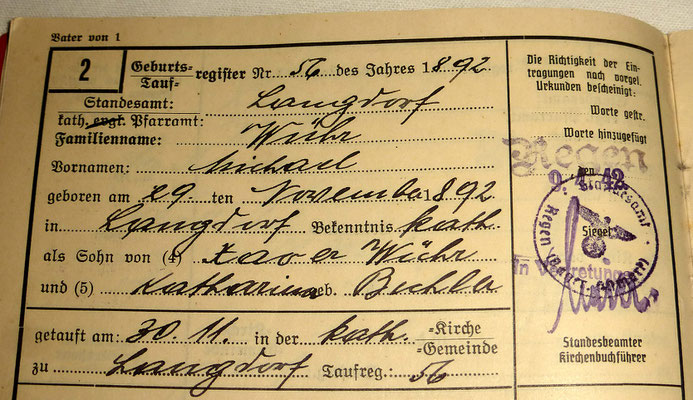 Vater von 1
2
Geburts-
Tauf-
register Nr 56 des Jahres 1892
Standesamt:
kath. evgl. Pfarramt: Langdorf
Familienname: Wühr
Vornamen: Michael
geboren am 29 ten November 1892
in Langdorf Bekenntnis kath.
als Sohn von (4) Xaver Wühr
und (5) Katharina geb.
getauft am: 30. 11. in der kath. -Kirche
-Gemeinde
zu Langdorf Taufreg.: 56
Die Richtigkeit der Ein-
tragungen nach vorgel.
Urkunden bescheinigt:
Worte gestr.
Worte hinzugefügt
Regen
den
9. 4. 42
Siegel
Standesamt Regen
In Vertretung
Standesbeamter
Kirchenbuchführer